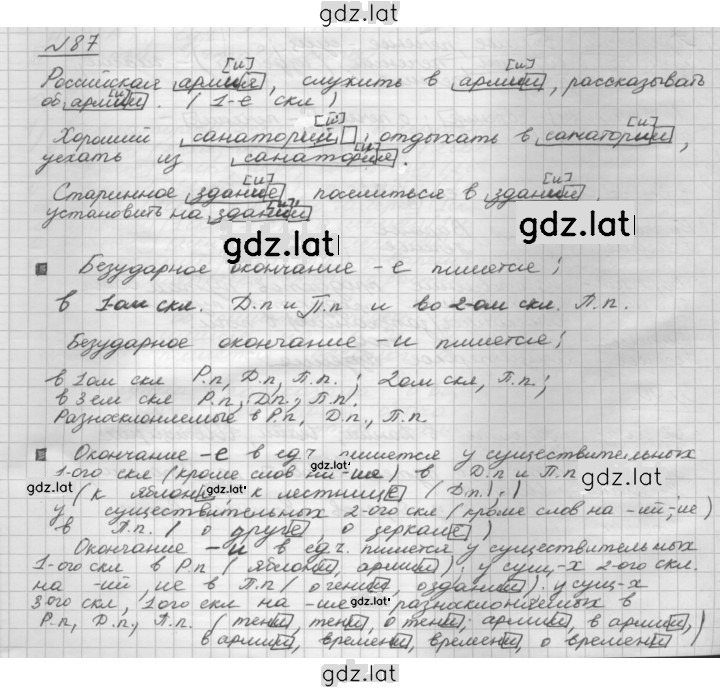 gdz.lat
№87
[и] [и]
Российская армия, служить в армии, рассказывать
[и]
об армии. (1-е скл)
[й] [и]
Хороший санаторий, отдыхать в санатории,
[и]
уехать из санатория.
[и] [и]
Старинное здание, поселиться в здании,
[и]
установить на здании
gdz.lat gdz.lat
Безударное окончание -е пишется;
в 1ом скл. Д.п и П.п и во 2-ом скл. П.п.
Безударное окончание -и пишется;
в 1ом скл Р.п, Д.п, П.п.; 2ом скл, П.п;
в 3ем скл Р.п, Д.п., П.п.
Разносклоняемые в Р.п, Д.п., П.п.
Окончание -е в ед.ч. пишется у существительных
gdz.lat
1-ого скл (кроме слов на -ие) в Д.п и П.п
gdz.lat gdz.lat
(к яблоне, к лестнице (Д.п).)
у существительных 2-ого скл (кроме слов на -ий; ие)
в П.п. (о друге о зеркале)
Окончание -и в ед.ч. пишется у существительных
1-ого скл в Р.п (яблони, армии); у сущ-х 2-ого скл.
на -ий, ие в П.п ( о гении, о здании). у сущ-х
gdz.lat
3-ого скл, 1ого скл на -ие разносклоняемых в
Р.п, Д.п., П.п. (тени, тени, о тени; армии, в армии,
в армии, времени, времени, о времени)
gdz.lat